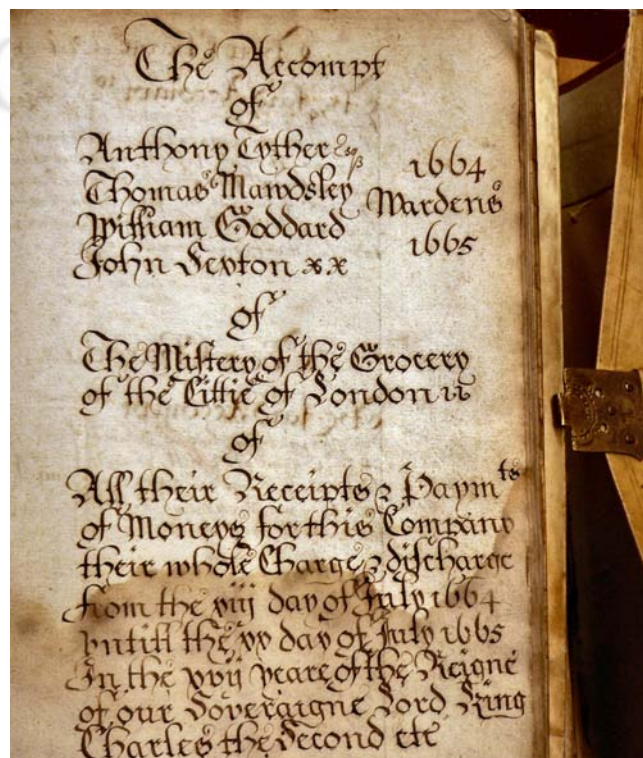 The Accompt
of
Anthony Tyther Esqr
Thomas Mawdsley
William Goddard
John Sexton xx
1664
Wardens
1665
of
The Mistery of the Grocery
of the Cittie of London
of
All their Receipts & Paymts
of Moneys for this Company
their whole Charge & discharge
from the xiij day of July 1664
vntill the xx day of July 1665
In the xvij yeare of the Reigne
of our Soveraigne Lord King
Charles the Second etc